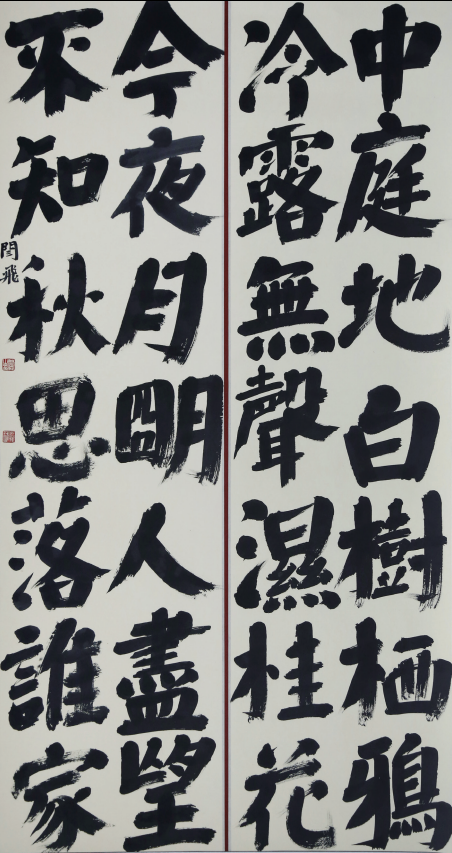 中庭地白樹栖鴉
冷露無聲濕桂花
今夜月朙人盡望
不知秋思落誰家
閆飛